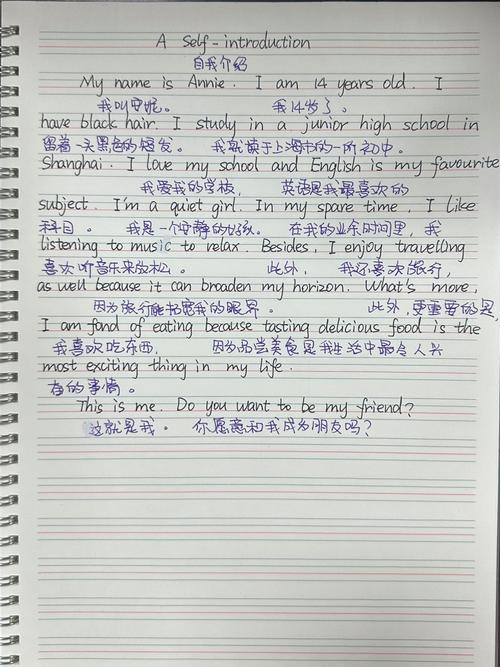 A Self-introduction
自我介绍
My name is Annie. I am 14 years old. I
我叫安妮。 我14岁了。
have black hair. I study in a junior high school in
留着一头黑色的短发。 我就读于上海市的一所初中。
Shanghai. I love my school and English is my favourite
我爱我的学校, 英语是我最喜欢的
subject. I'm a quiet girl. In my spare time, I like
科目。 我是一个安静的女孩。 在我的业余时间里,我
listening to music to relax. Besides, I enjoy travelling
喜欢听音乐来放松。 此外, 我还喜欢旅行,
as well because it can broaden my horizon. What's more,
因为旅行能拓宽我的眼界。 此外,更重要的是,
I am fond of eating because tasting delicious food is the
我喜欢吃东西, 因为品尝美食是我生活中最令人兴
most exciting thing in my life.
奋的事情。
This is me. Do you want to be my friend?
这就是我。 你愿意和我成为朋友吗?